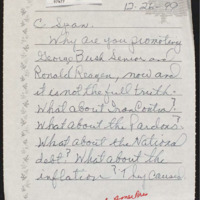 12-26-90
C Span.
Why are you promoting
George Bush Senior and
Ronald Reagen, now and
it is not the full truth.
What about IranContra?
What about the Pardons?
What about the National
debt? What about the
inflation? They caused